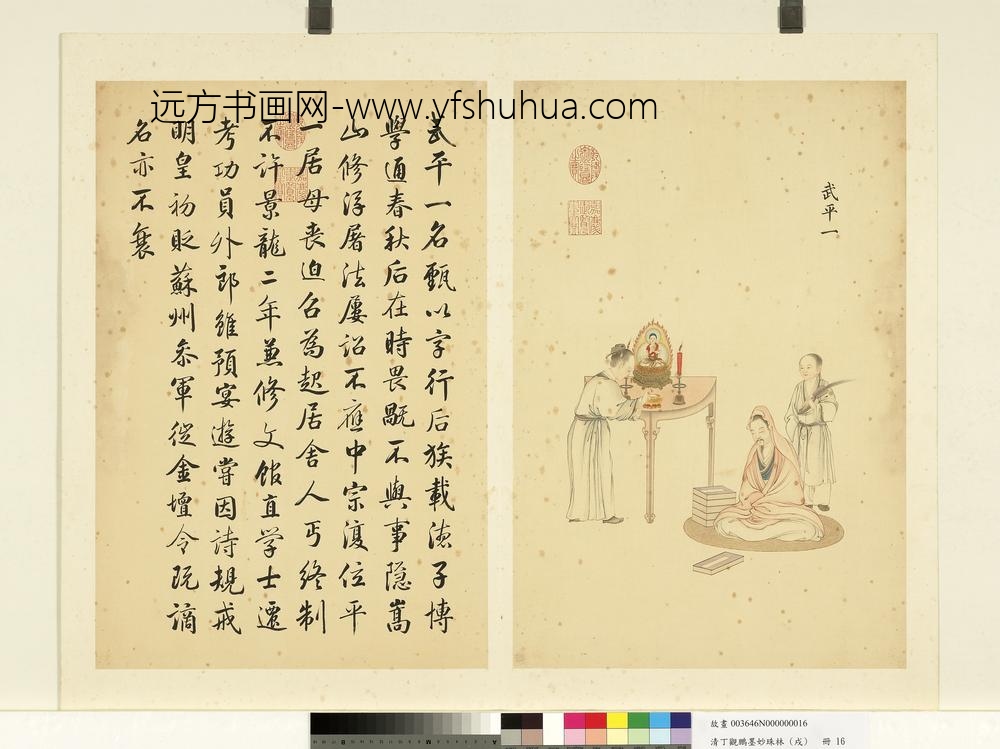 远方书画网-www.yfshuhua.com
武平一
武平一名甄以字行后族載德子博
學通春秋后在時畏禍不與事隱嵩
山修浮屠法屢詔不應中宗復位平
一居母喪迫召為起居舍人丐終制
不許景龍二年兼修文館直学士遷
考功員外郎雖預宴遊嘗因詩規戒
明皇初貶蘇州叅軍從金壇令既謫
名亦不衰
故畫 003646N000000016
清丁觀鵬墨妙珠林（戌） 冊 16